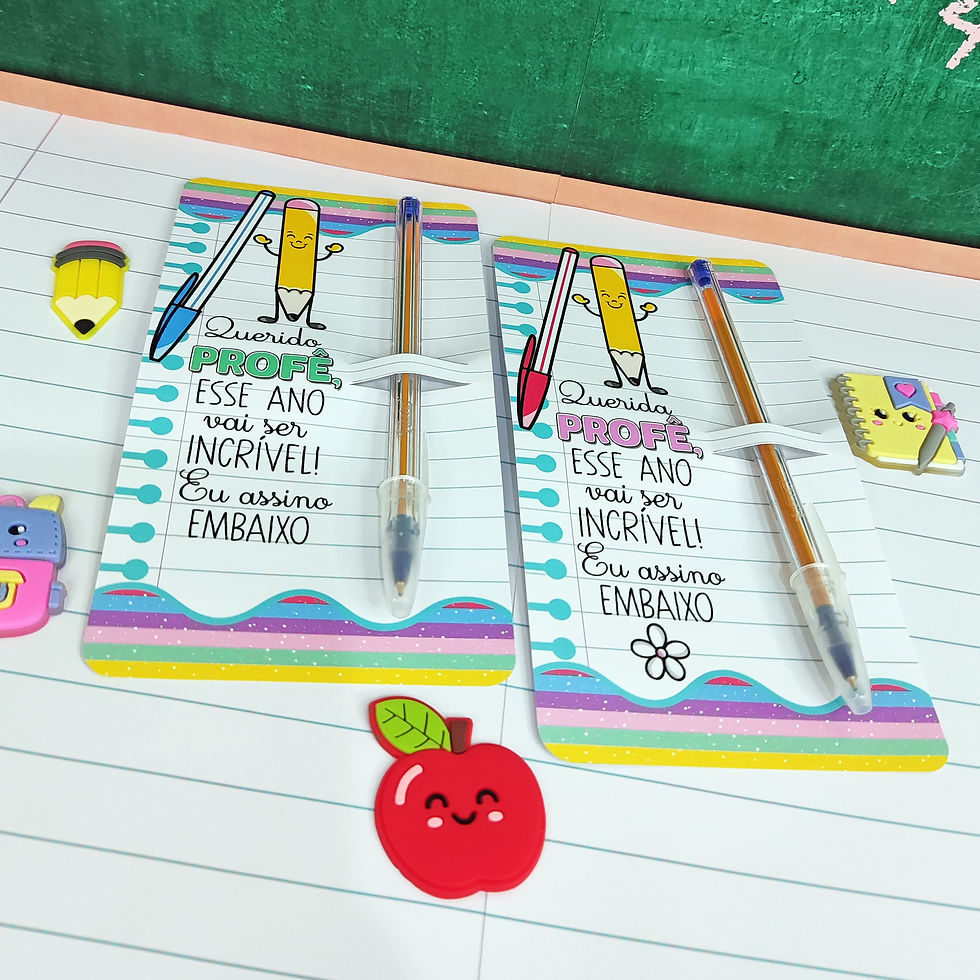 Querido
PROFÊ,
ESSE ANO
vai ser
INCRÍVEL!
Eu assino
EMBAIXO
Querida
PROFÊ,
ESSE ANO
vai ser
INCRÍVEL!
Eu assino
EMBAIXO